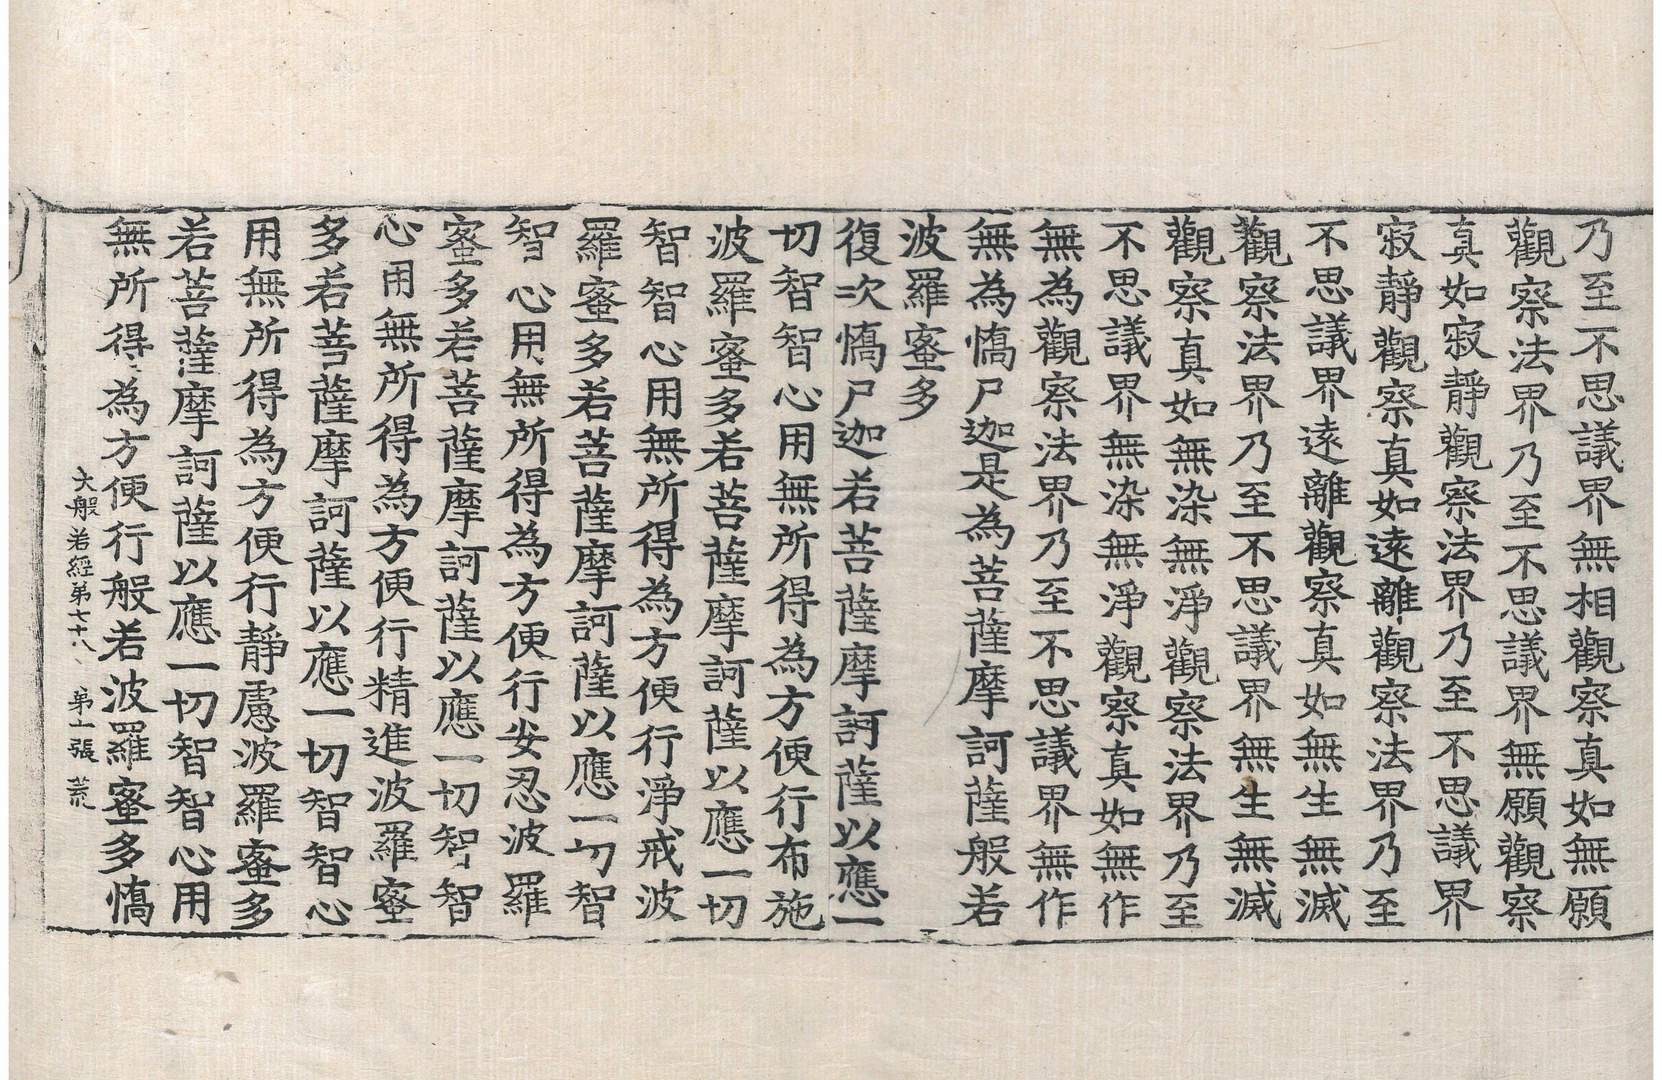 乃至不思議界無相觀察真如無願
觀察法界乃至不思議界無願觀察
真如寂靜觀察法界乃至不思議界
寂靜觀察真如遠離觀察法界乃至
不思議界遠離觀察真如無生無滅
觀察法界乃至不思議界無生無滅
觀察真如無染無淨觀察法界乃至
不思議界無染無淨觀察真如無作
無為觀察法界乃至不思議界無作
無為憍尸迦是為菩薩摩訶薩般若
波羅蜜多
復次憍尸迦若菩薩摩訶薩以應一
切智智心用無所得為方便行布施
波羅蜜多若菩薩摩訶薩以應一切
智智心用無所得為方便行淨戒波
羅蜜多若菩薩摩訶薩以應一切智
智心用無所得為方便行安忍波羅
蜜多若菩薩摩訶薩以應一切智智
心用無所得為方便行精進波羅蜜
多若菩薩摩訶薩以應一切智智心
用無所得為方便行靜慮波羅蜜多
若菩薩摩訶薩以應一切智智心用
無所得為方便行般若波羅蜜多憍
大般若經第七十八 第張 荒